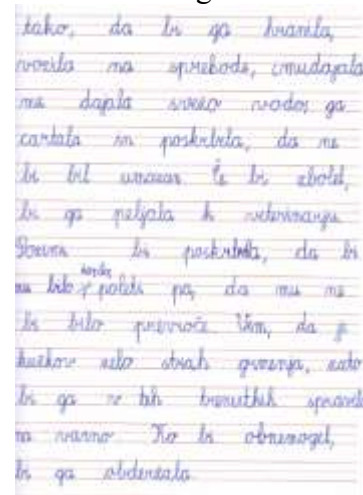 tako, da bi ga hranila,
vozila na sprehode, mu dajala
mu dajala svežo vodo, ga
cartala in poskrbela, da ne
bi bil umazan. Če bi zbolel,
bi ga peljala k veterinarju.
bi poskrbela, da bi
mu bilo poleti pa, da mu ne
bi bilo prevroče. Vem, da je
kužkov zelo strah grmenja, zato
bi ga v teh trenutkih spravila
na varno. Ko bi obnemogel,
bi ga obdržala.